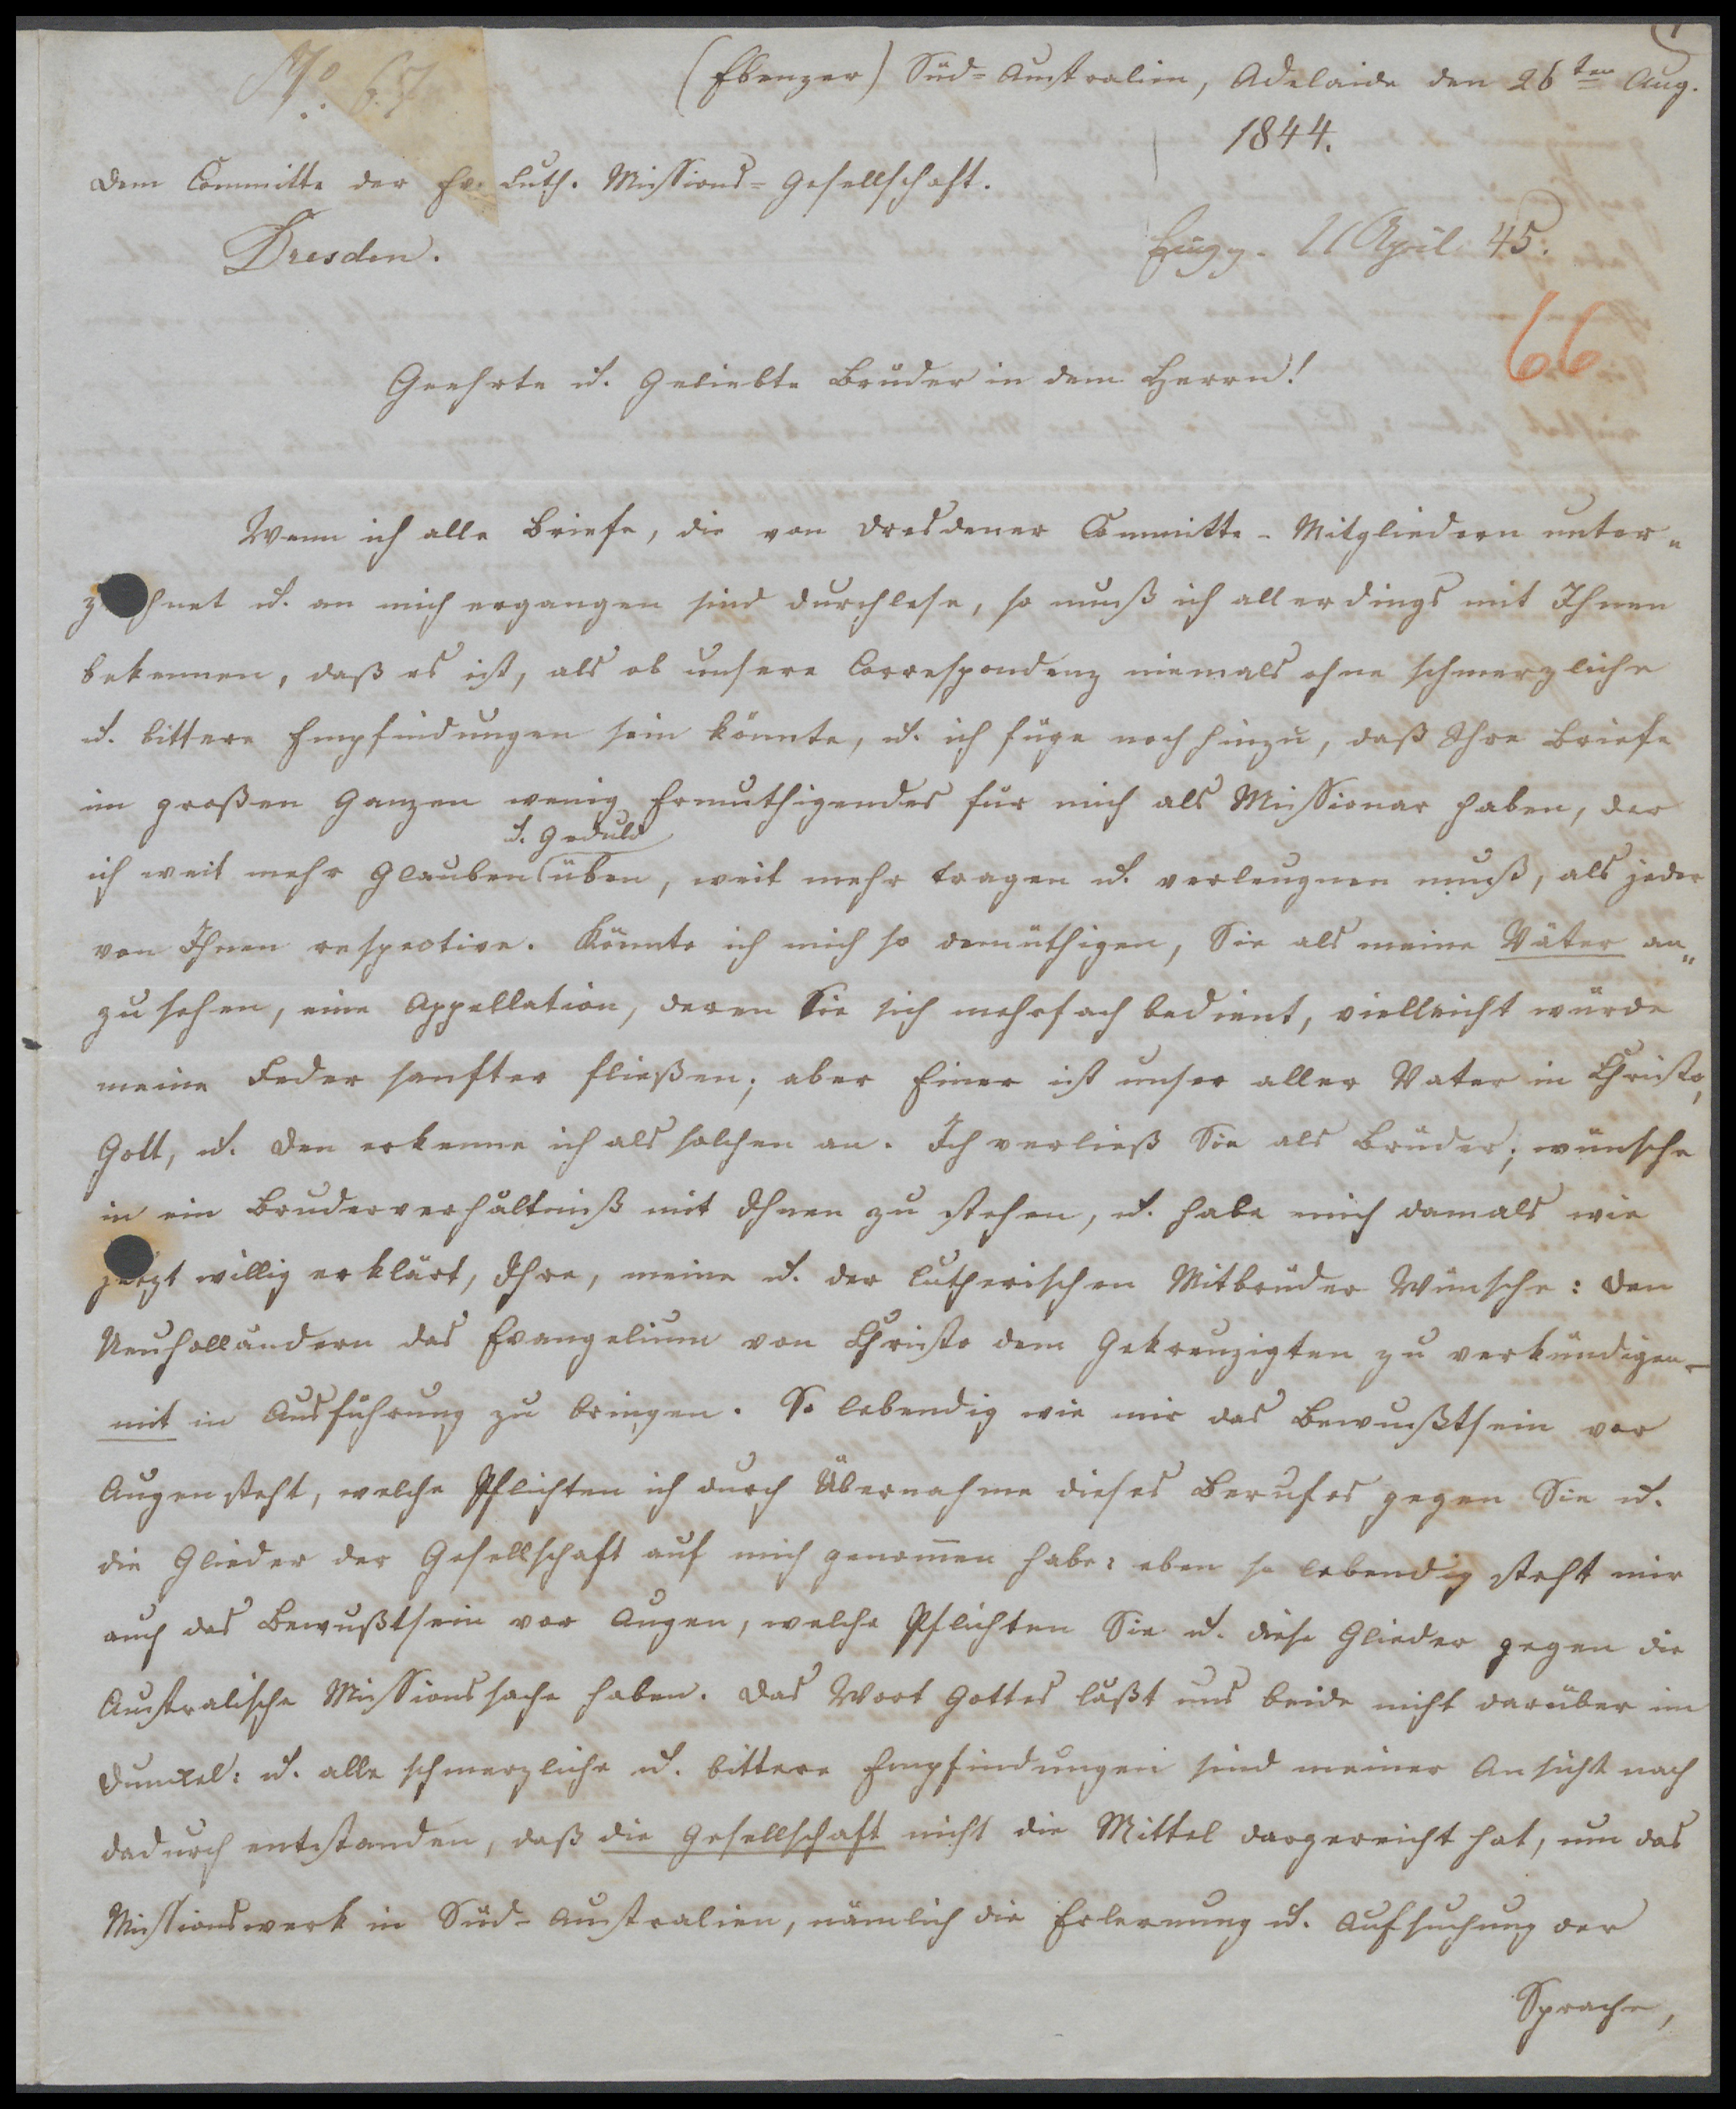 No. 67
(Ebenzer) Süd-Australien, Adelaide den 26ten Aug.
1844.
Dem Committe der Ev. Luth. Missions-Gesellschaft.
Dresden.
Eingg. 11 April 45.
66
Geehrte u. geliebte Brüder in dem Herrn!
Wenn ich alle Briefe, die von Dresdener Committe-Mitgliedern unter-
zeichnet u. an mich ergangen sind durchlese, so muß ich allerdings mit Ihnen
bekennen, daß es ist, als ob unsere Correspondenz niemals ohne schmerzliche
u. bittere Empfindungen sein könnte, u. ich füge noch hinzu, daß Ihre Briefe
im großen Ganzen wenig Ermuthigendes für mich als Missionar haben, der
u. Geduld
ich weit mehr Glauben üben, weit mehr tragen u. verleugnen muß, als jeder
von Ihnen respective. Könnte ich mich so demüthigen, Sie als meine Väter an-
zusehen, eine Appellation, deren Sie sich mehrfach bedient, vielleicht würde
meine Feder sanfter fließen; aber Einer ist unser aller Vater in Christo,
Gott, u. den erkenne ich als solchen an. Ich verließ Sie als Brüder; wünsche
in ein Bruderverhältniß mit Ihnen zu stehen, u. habe mich damals wie
jetzt willig erklärt, Ihre, meine u. der lutherischen Mitbrüder Wünsche: den
Neuholländern das Evangelium von Christo dem Gekreuzigten zu verkündigen -
mit in Ausführung zu bringen. So lebendig wie mir das Bewußtsein vor
Augen steht, welche Pflichten ich durch Übernahme dieses Berufes gegen Sie u.
die Glieder der Gesellschaft auf mich genommen habe: eben so lebendig steht mir
auch das Bewußtsein vor Augen, welche Pflichten Sie u. diese Glieder gegen die
Australische Missionssache haben. Das Wort Gottes läßt uns beide nicht darüber im
Dunkel: u. alle schmerzliche u. bittere Empfindungen sind meiner Ansicht nach
dadurch entstanden, daß die Gesellschaft nicht die Mittel dargereicht hat, um das
Missionswerk in Süd-Australien, nämlich die Erlernung u. Aufsuchung der
Sprache,